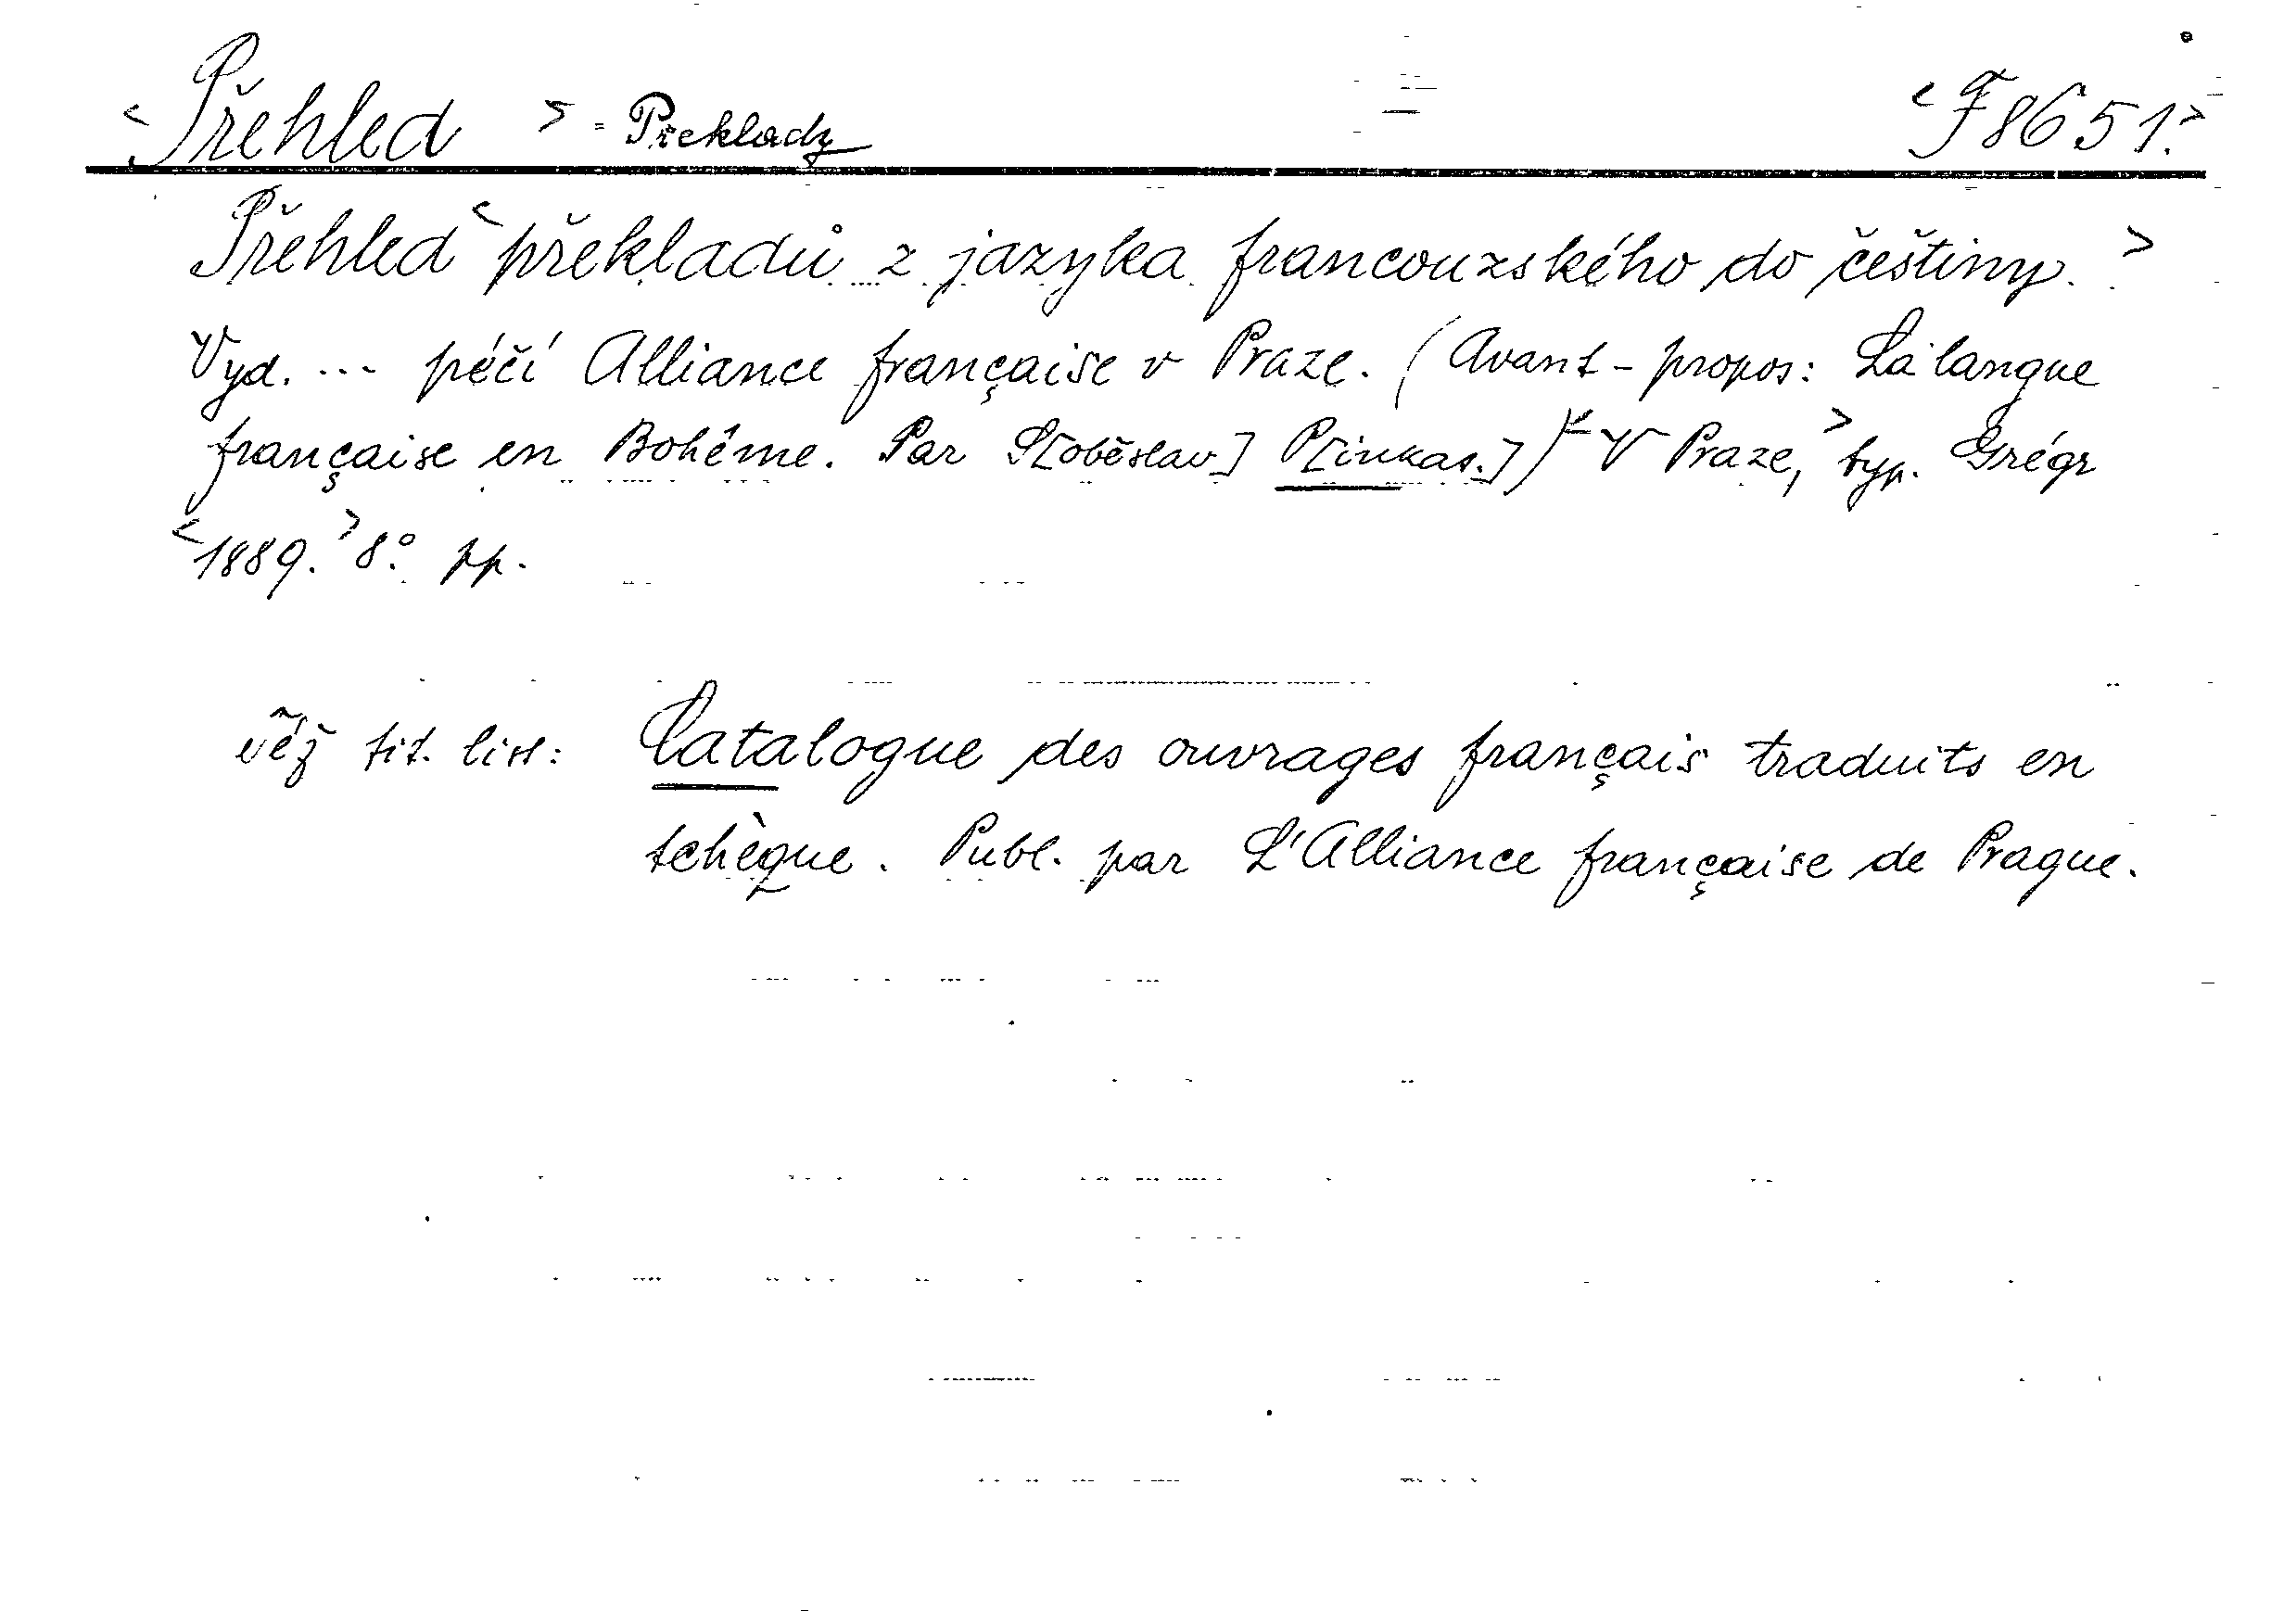 <Přehled > = Překlady <F 8651.>
Přehled <překladů z jazyka francouzského do češtiny. >
Vyd. ... péčí Alliance française v Praze. (Avant-propos: La langue
française en Bohême. Par S[oběslav] P[inkas.]) < V Praze,> typ. Grégr
<1889.> 8° pp.
též tit. list: Catalogue des ouvrages français traduits en
tchèque. Publ. par L'Alliance française de Prague.